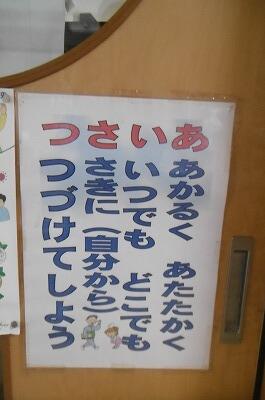 あ あかるく あたたかく
い いつでも どこでも
さ さきに(自分から)
つ つづけてしよう